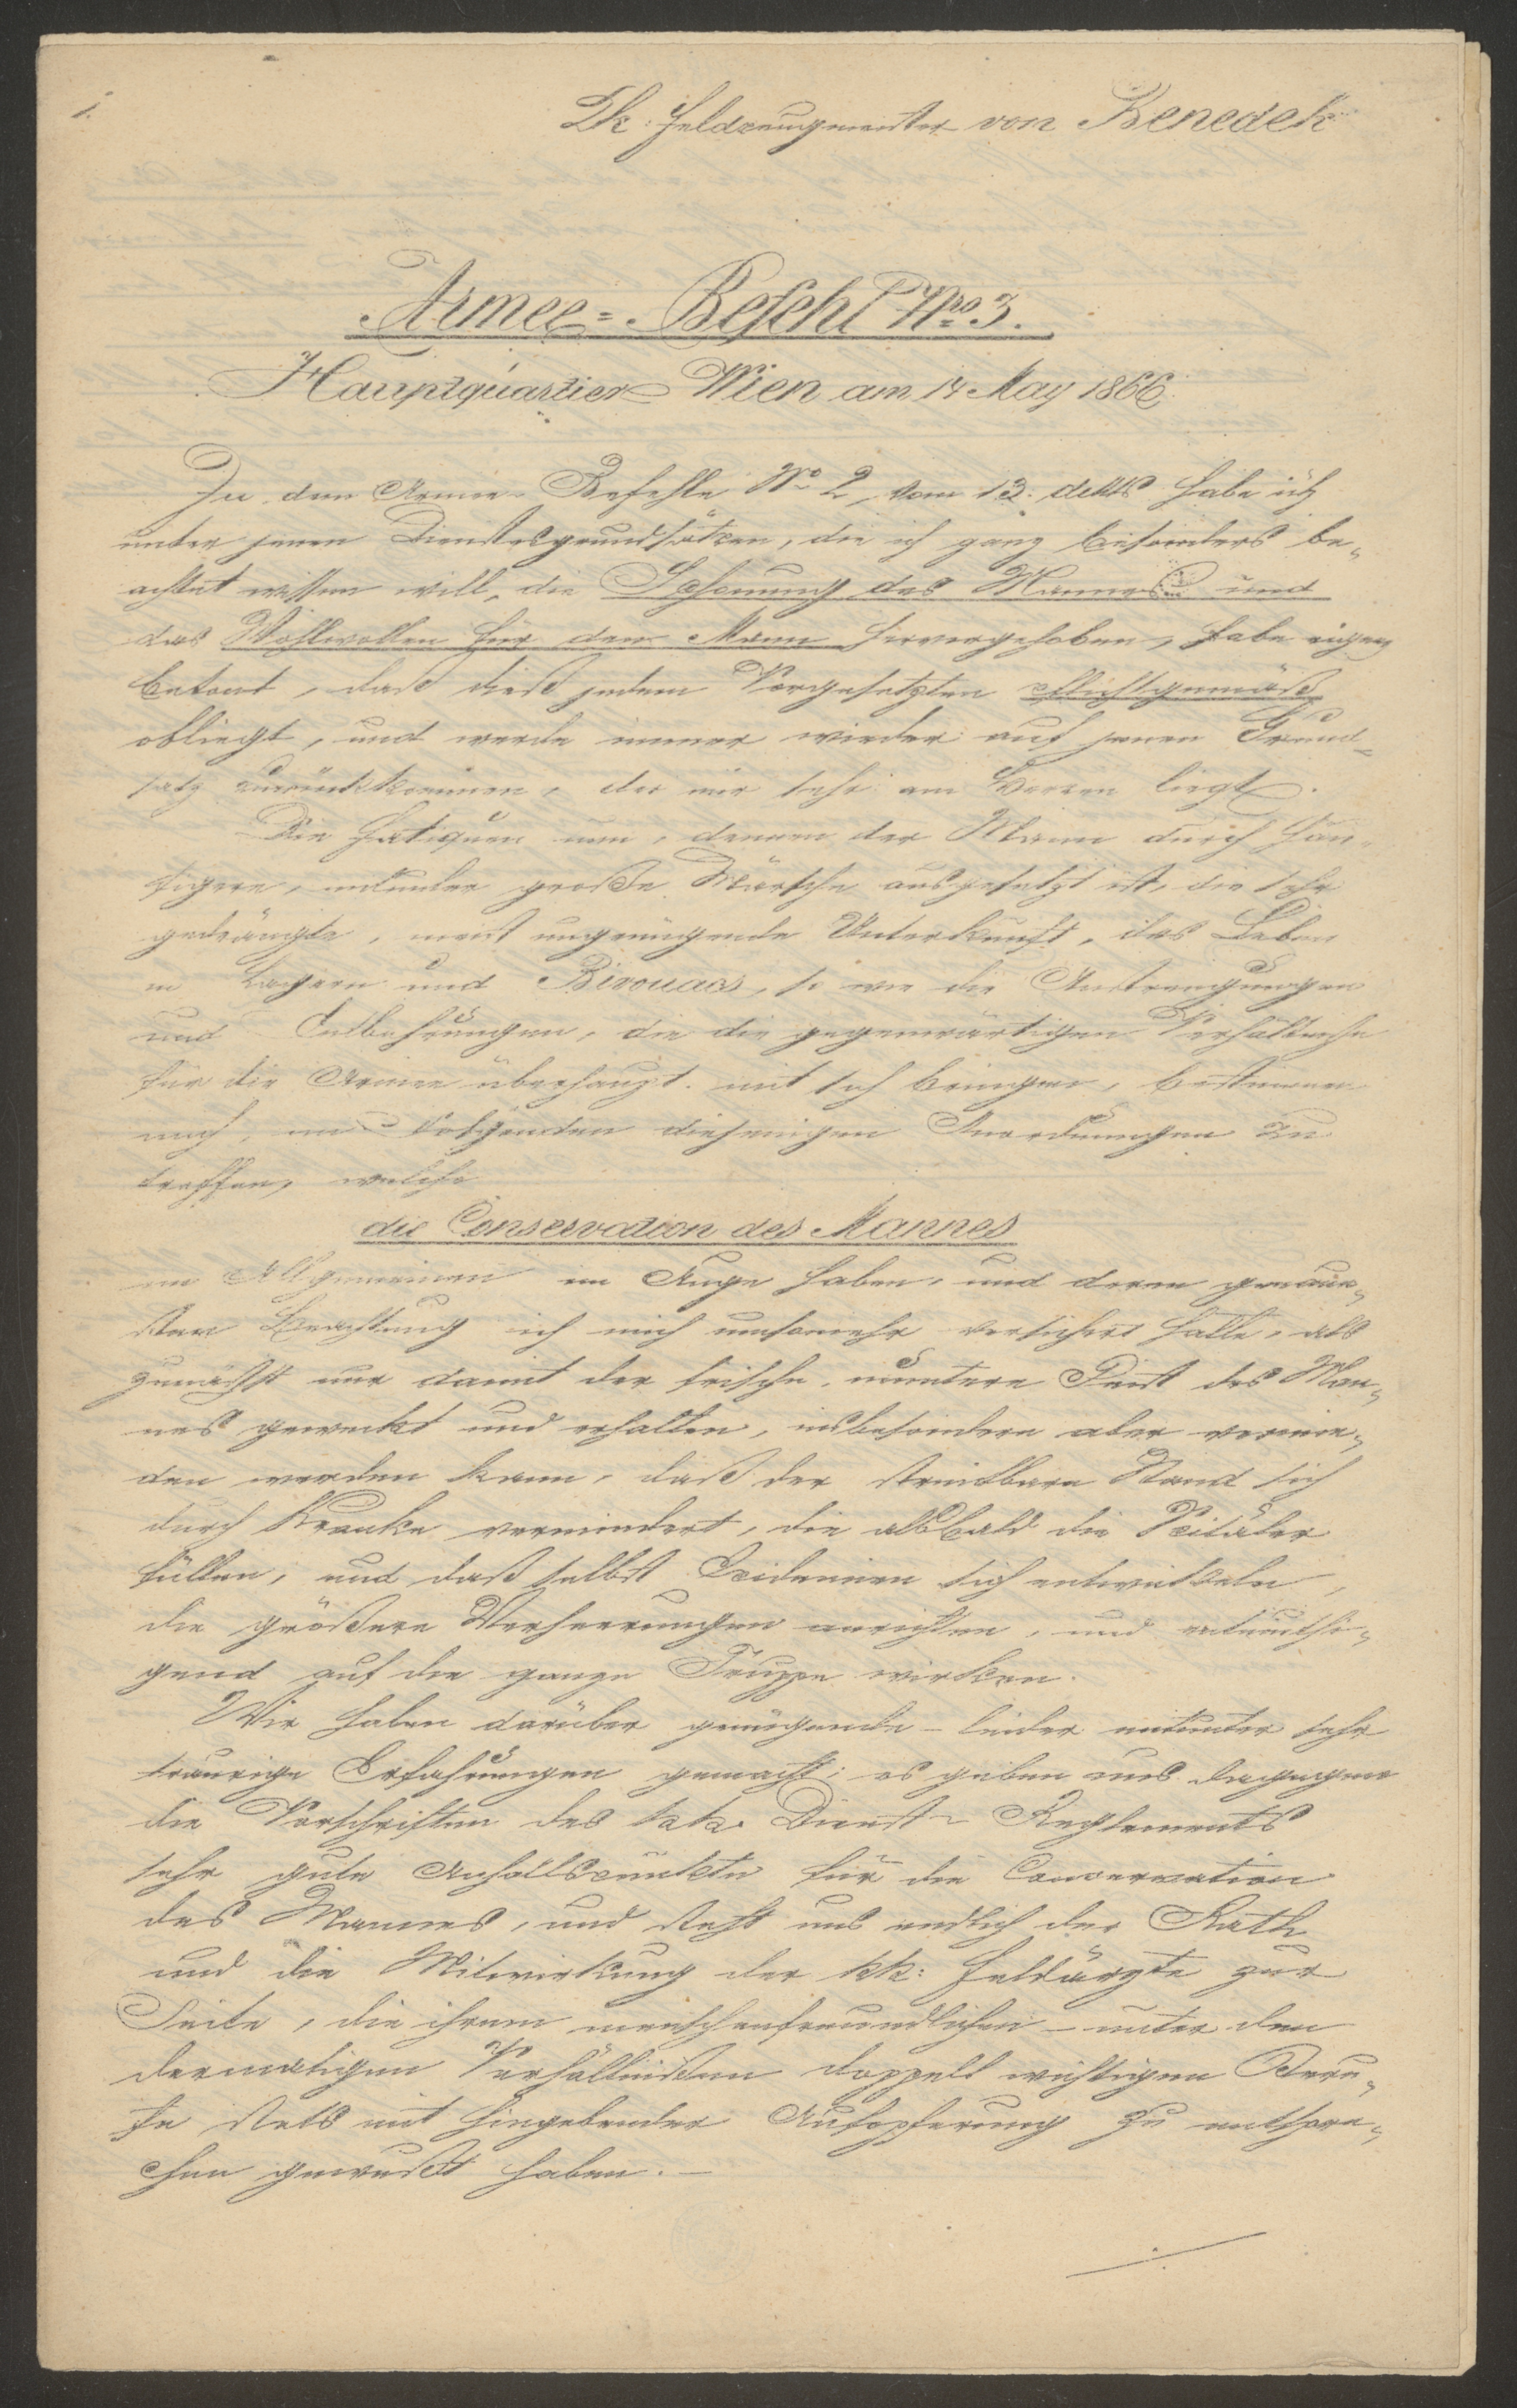 1.
kk: Feldzeugmeister von Benedek
Armee-Befehl Nro 3.
Hauptquartier Wien am 14 May 1866
In dem Armee-Befehle No 2, vom 13. dtts habe ich
unter jenen Dienstesgrundsätzen, die ich ganz besonders be-
achtet wissen will, die Schonung des Mannes und
das Wohlwollen für den Mann hervorgehoben, habe eigens
betont, daß dieß jedem Vorgesetzten pflichtgemäß
obliegt, und werde immer wieder auf jenen Grund-
satz zurückkommen, der mir sehr am Herzen liegt.
Die Fatiquen nun, denen der Mann durch häu-
figere, mitunter große Märsche ausgesetzt ist, die sehr
gedrängte, meist ungenügende Unterkunft, das Leben
in Lagern und Bivouacs, so wie die Anstrengungen
und Entbehrungen, die die gegenwärtigen Verhältniße
für die Armee überhaupt mit sich bringen, bestimmen
mich, im Folgenden diejenigen Anordnungen zu
treffen, welche
die Conservation des Mannes
im Allgemeinen im Auge haben, und deren genaue-
ster Beachtung ich mich umsomehr versichert halte, als
zunächst nur damit der frische, muntere Geist des Man-
nes geweckt und erhalten, insbesondere aber vermie-
den werden kann, daß der streitbare Stand sich
durch Kranke vermindert, die alsbald die Spitäler
füllen, und daß selbst Epidemien sich entwickeln,
die größere Verheerungen anrichten, und entmuthi-
gend auf die ganze Truppe wirken.
Wir haben darüber genügende - leider mitunter sehr
traurige Erfahrungen gemacht; es geben uns dagegen
die Vorschriften des k.k. Dienst-Reglements
sehr gute Anhaltspunkte für die Conservation
des Mannes, und steht uns endlich der Rath
und die Mitwirkung der kk: Feldärzte zur
Seite, die ihrem menschenfreundlichen - unter den
dermaligen Verhältnißen doppelt wichtigen Beru-
fe stets mit hingebender Aufopferung zu entspre-
chen gewußt haben. -